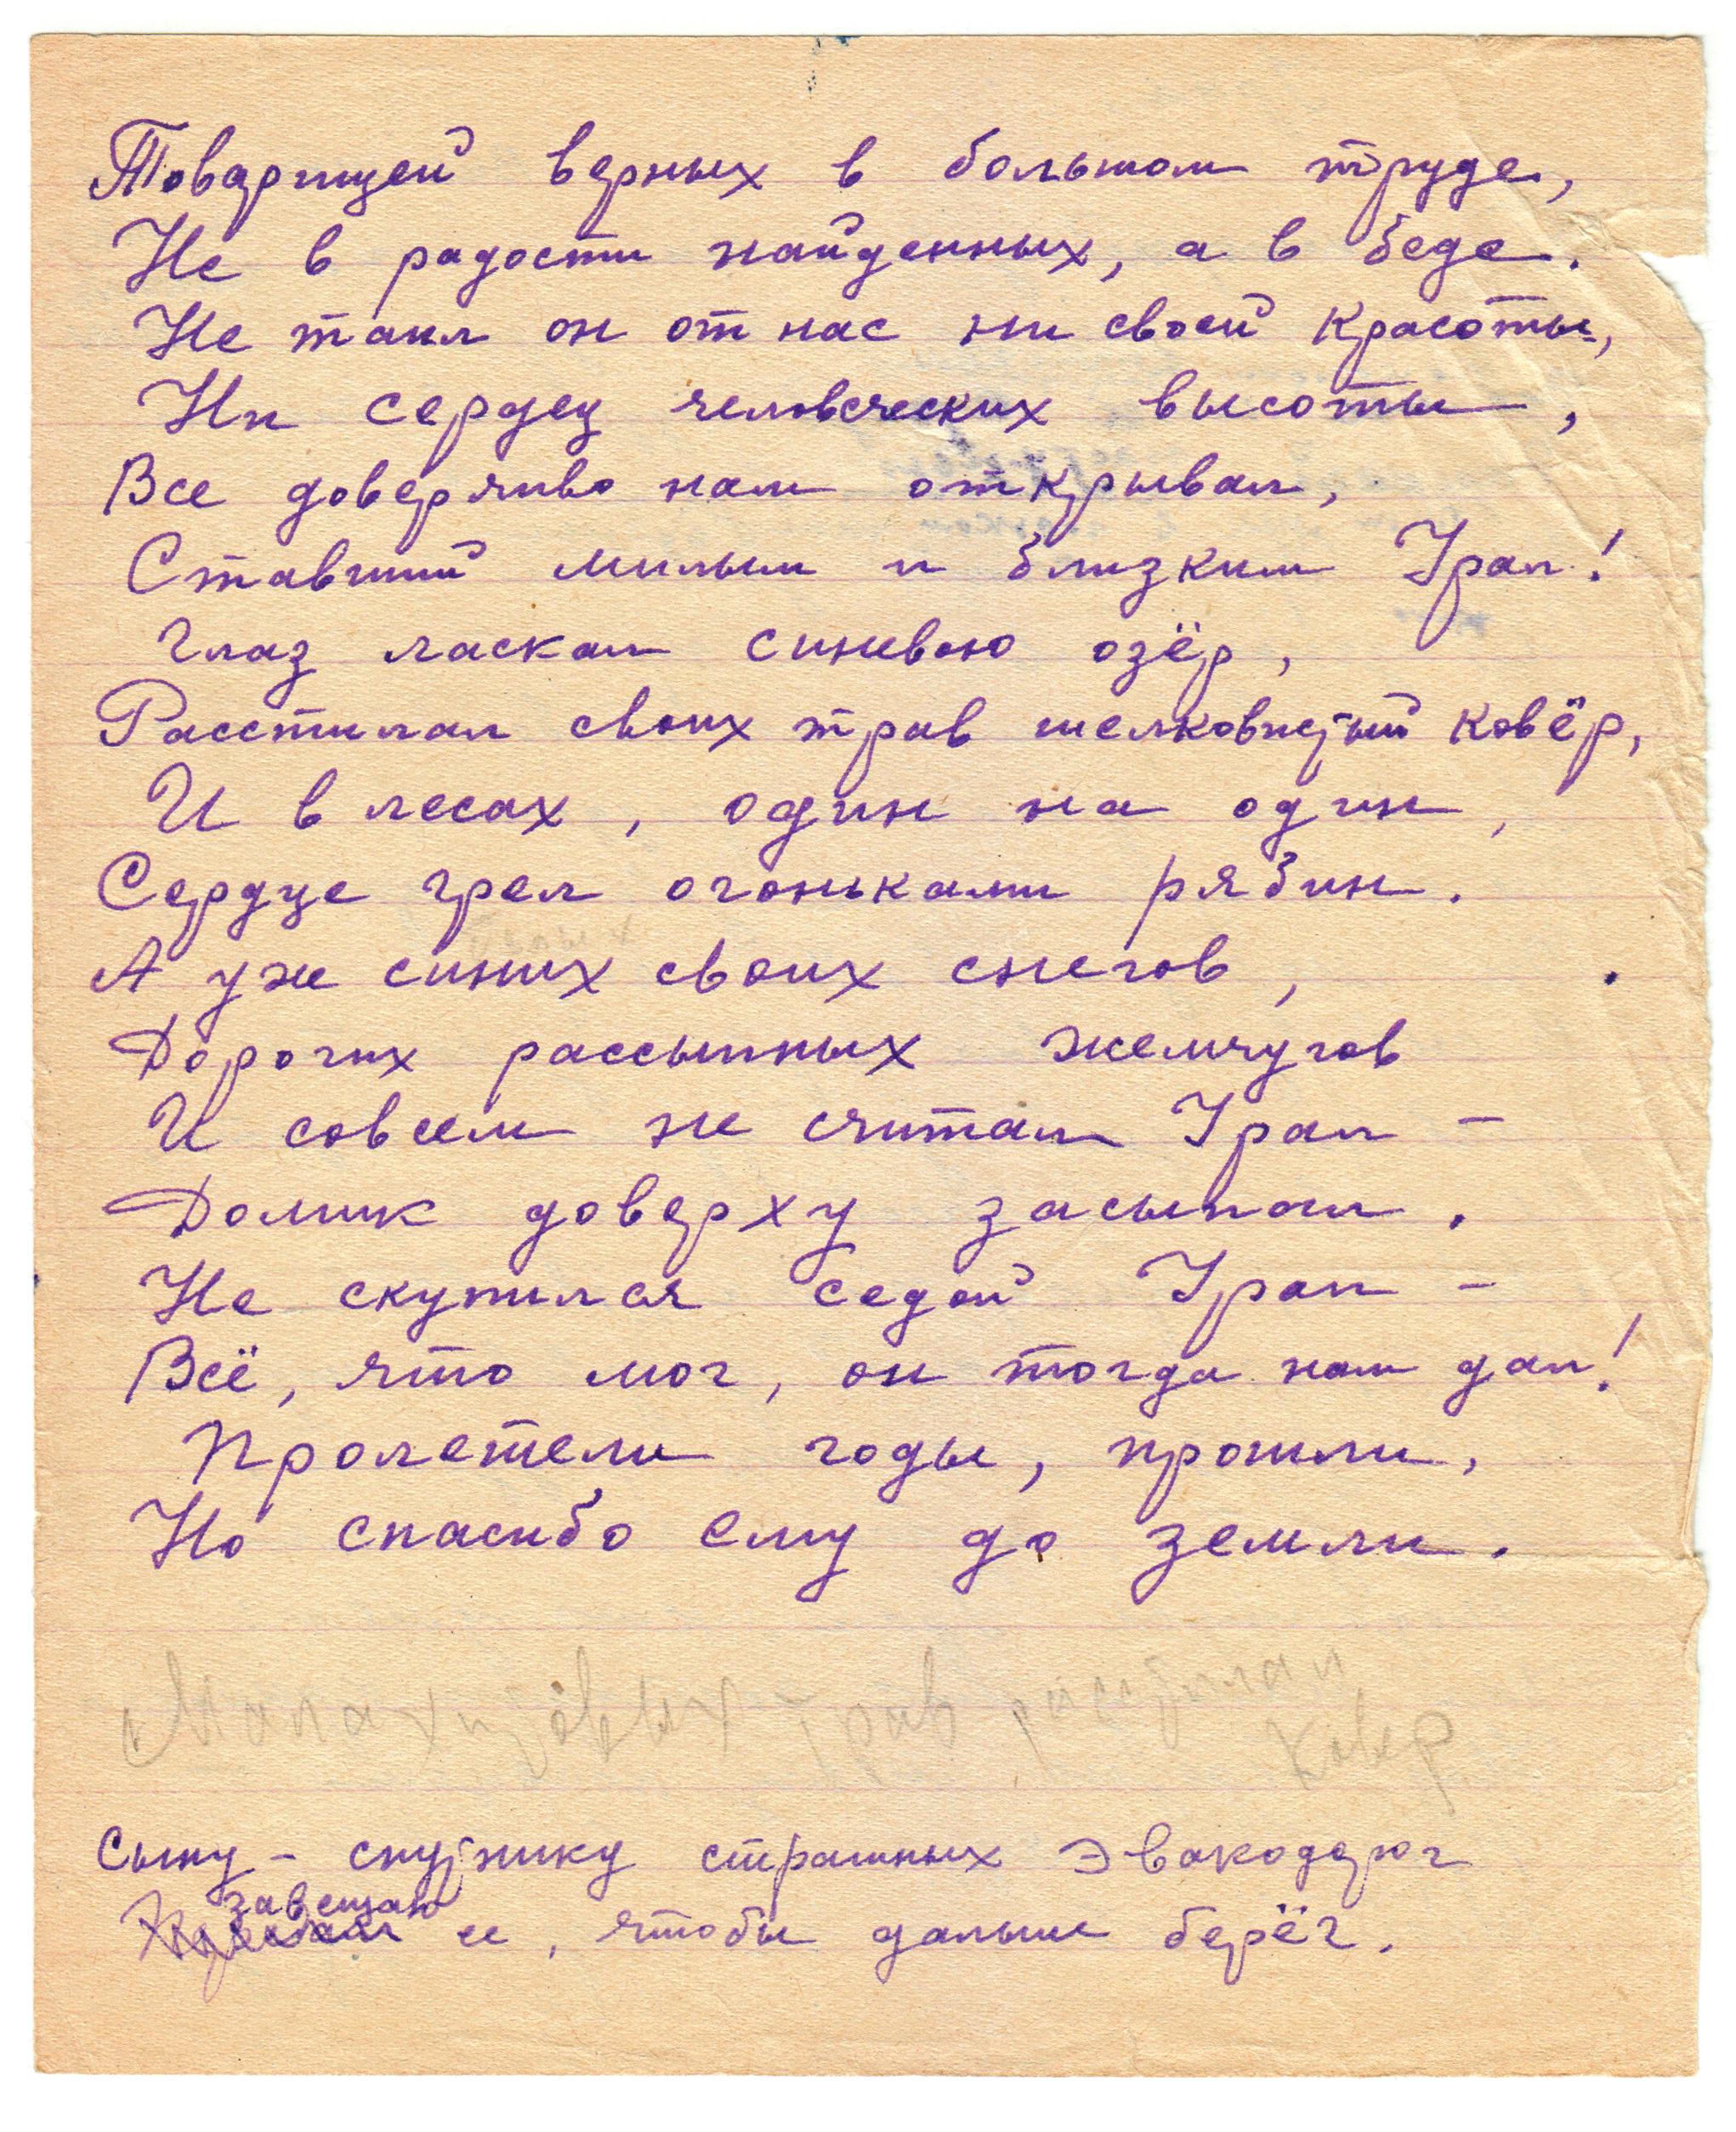 Товарищей верных в большом труде,
Не в радости найденных, а в беде.
Не таил он от нас ни своей красоты,
Ни сердец человеческих высоты,
Все доверчиво нам открывал,
Ставший милым и близким Урал!
Глаз ласкал синевою озёр,
Расстилал своих трав шелковистый ковёр,
И в лесах, один на один,
Сердце грел огоньками рябин.
А уж синих своих снегов,
Дорогих рассыпных жемчугов
И совсем не считал Урал –
Домик доверху засыпал.
Не скупился седой Урал –
Всё, что мог, он тогда нам дал!
Пролетели годы, прошли,
Но спасибо ему до земли.
Малахитовых трав расстилал
ковер
Сыну – спутнику страшных эвакодорог
завещаю
ее, чтобы дальше берёг.